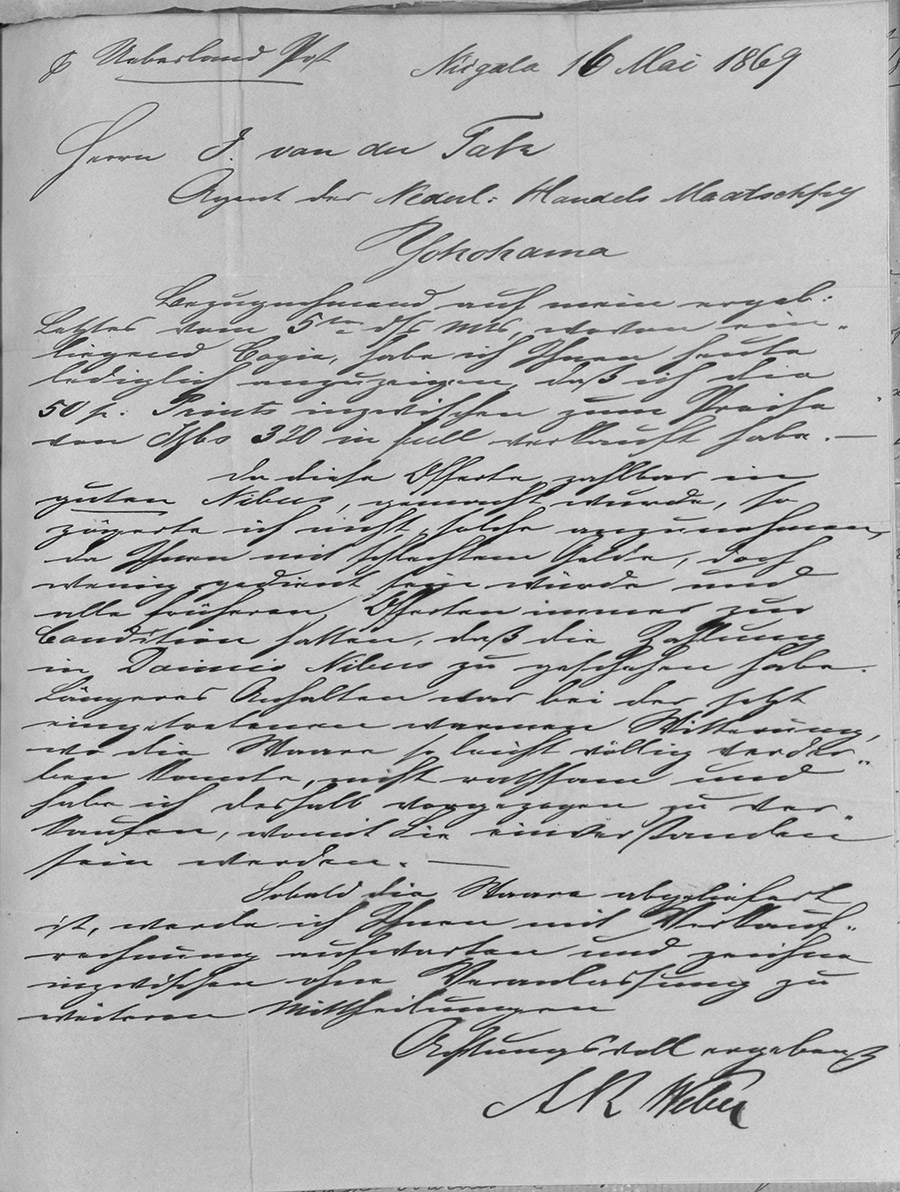 p Ueberland Post
Niegata 16 Mai 1869
Herrn J. van der Tak
Agent der Nederl: Handels Maatschpy
Yokohama
Bezugnehmend auf mein ergeb:
Letztes vom 5ten dss Mts, wovon ein-
liegend Copie, habe ich Ihnen heute
lediglich anzuzeigen, daß ich die
50 p. Prints inzwischen zum Preise
von Itzbs 320 in full verkauft habe. —
Da diese Offerte, zahlbar in
guten Nibus, gemacht wurde, so
zögerte ich nicht, solche anzunehmen,
da Ihnen mit schlechtem Gelde, doch
wenig gedient sein würde und
alle früheren Offerten immer zur
Condition hatten, daß die Zahlung
in Daimio Nibus zu geschehen habe.
Längeres Anhalten war bei der jetzt
eingetretenen warmen Witterung,
wo die Waare so leicht völlig verder-
ben konnte, nicht rathsam und
habe ich deshalb vorgezogen zu ver-
kaufen, womit Sie einverstanden
sein werden. —
Sobald die Waare abgeliefert
ist, werde ich Ihnen mit Verkauf-
rechnung aufwarten und zeichne
inzwischen ohne Veranlassung zu
weiteren Mittheilungen
Achtungsvoll ergebenst
A R Weber